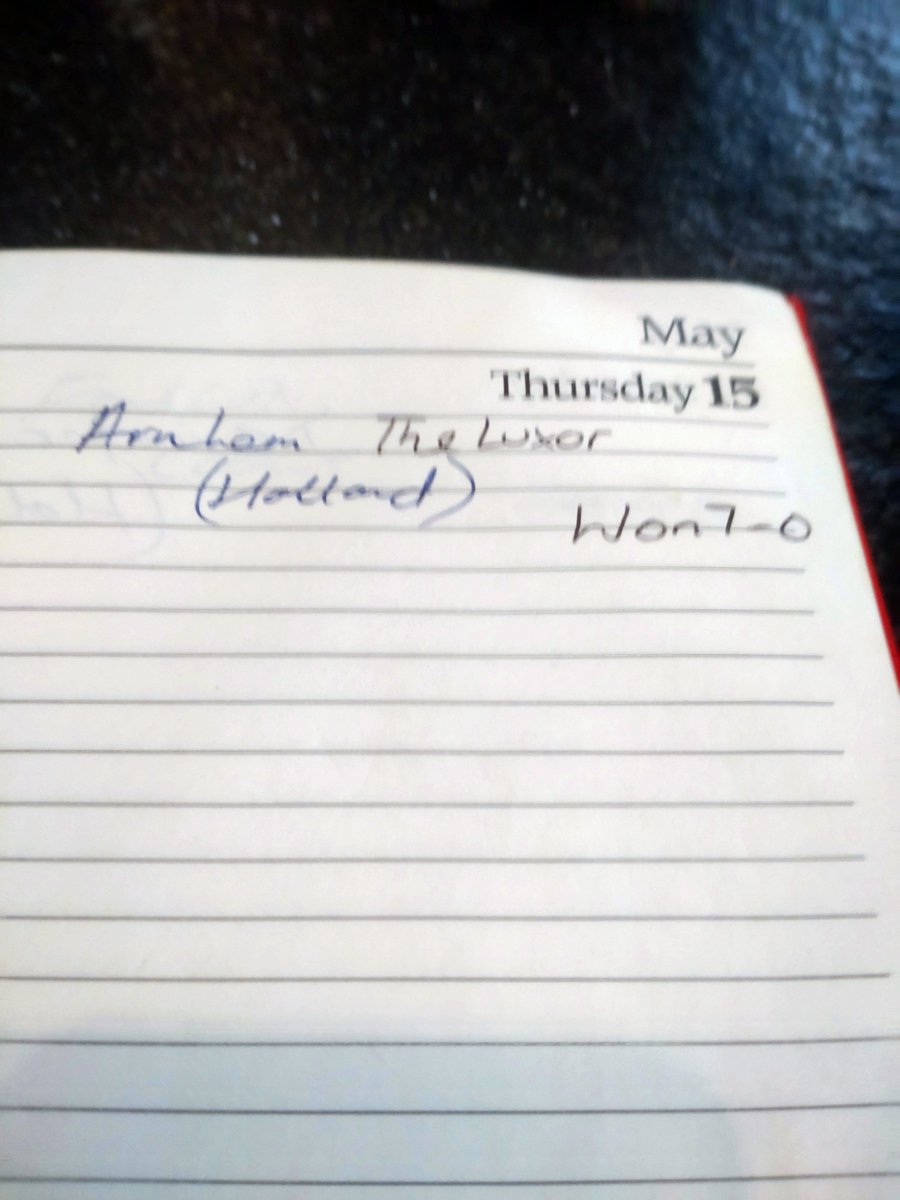 May
Thursday 15
Arnhem The Luxor
(Holland)
Won 7-0